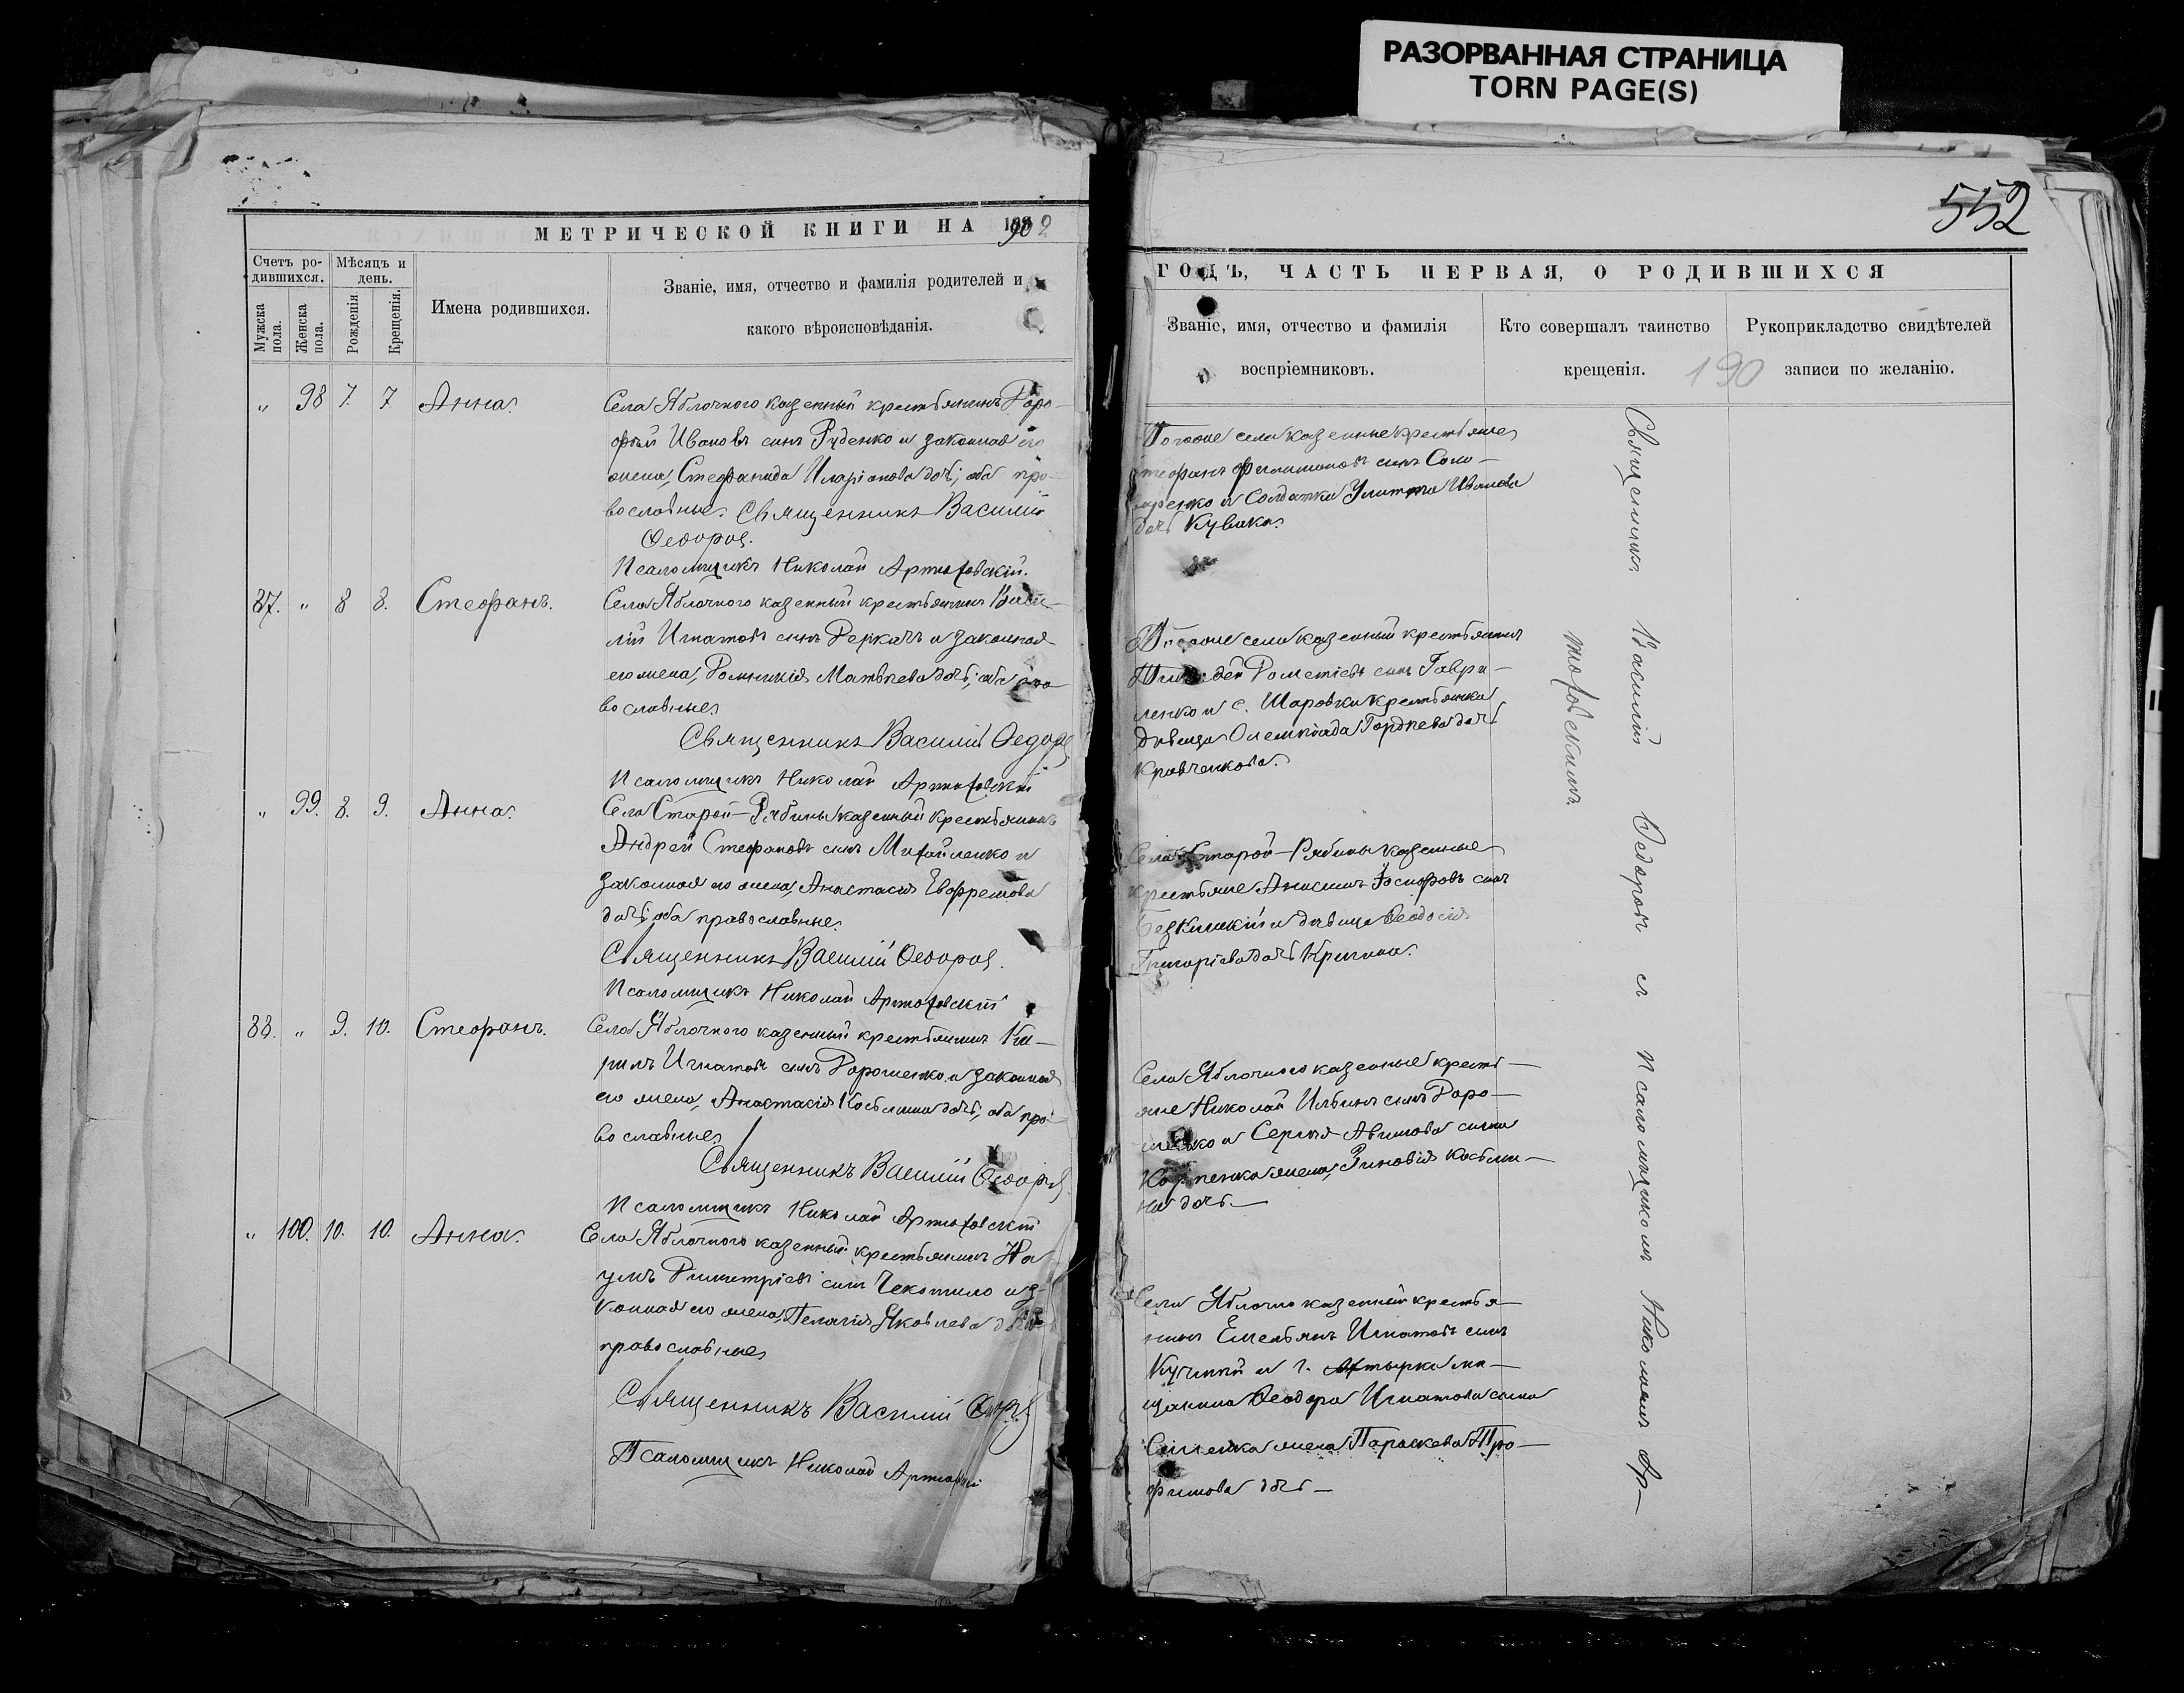 РАЗОРВАННАЯ СТРАНИЦА
TORN PAGE(S)
552
МЕТРИЧЕСКОЙ КНИГИ НА 1902
Счетъ родившихся.
Мѣсяцъ и день.
Мужска пола.
Женска пола.
Рожденія
Крещенія.
Имена родившихся.
Званіе, имя, отчество и фамилія родителей и
какого вѣроисповѣданія.
" 98 7. 7 Анна.
Села Яблочного казенный крестьянинъ
Ивановъ сынъ Руденко и законная его
жена, Стефанида Иларіонова дочь; оба пра-
вославные. Священникъ Василій
Ѳедоровъ.
Псаломщикъ Николай Артюховскій.
87. " 8 8. Стефанъ.
Села Яблочного казенный крестьянинъ Васи-
лій Игнатовъ сынъ Деркачъ и законная
его жена, Домникія Матвѣева дочь; оба пра-
вославные.
Священникъ Василій Ѳедоровъ
Псаломщикъ Николай Артюховскій
" 99. 8. 9. Анна.
Села Старой-Рябины казенный крестьянинъ
Андрей Стефановъ сынъ Михайленко и
законная его жена, Анастасія Евфремова
дочь; оба православные.
Священникъ Василій Ѳедоровъ.
Псаломщикъ Николай Артюховскій
88. " 9. 10. Стефанъ.
Села Яблочного казенный крестьянинъ Ки-
рилъ Игнатовъ сынъ Дорошенко и законная
его жена, Анастасія Косьмина дочь; оба пра-
вославные.
Священникъ Василій Ѳедоровъ
Псаломщикъ Николай Артюховскій
" 100. 10. 10. Анна.
Села Яблочного казенный крестьянинъ На-
умъ Димитріевъ сынъ Чекотило и за-
конная его жена, Пелагія Яковлева
православные
Священникъ Василій
Псаломщикъ Николай
ГОДЪ, ЧАСТЬ ПЕРВАЯ, О РОДИВШИХСЯ
Званіе, имя, отчество и фамилія
воспріемниковъ.
Кто совершалъ таинство
крещенія.
Рукоприкладство свидѣтелей
записи по желанію.
190
Тогоже села казенные крестьяне
Стефанъ Филимоновъ сынъ
и солдатка Улитта Иванова
дочь
Тогоже села казенный крестьянинъ
сынъ Гаври-
ленко и с. Шаровки крестьянка
дѣвица Олимпіада Гордѣева дочь
Кравченкова.
Села Старой-Рябины казенные
крестьяне Анисимъ сынъ
и дѣвица Ѳеодосія
Григоріева дочь
Села Яблочного казенные кресть-
яне Николай Ильинъ сынъ Доро-
шенко и Сергѣя сына
Карпенка жена, Зиновія Косьми-
на дочь-
Села Яблочно казенный крестья-
нинъ Емельянъ Игнатовъ сынъ
и г. Ахтырка мѣ-
щанина Ѳеодора Игнатова сына
жена Параскева Тро-
фимова дочь-
Священникъ Василій Ѳедоровъ съ псаломщикомъ Николаемъ Ар-
тюховскимъ